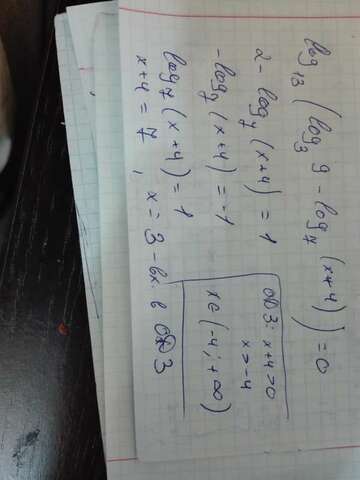 log₁₃ (log₃ 9 - log₇ (x+4)) = 0
2 - log₇ (x+4) = 1
- log₇ (x+4) = -1
log₇ (x+4) = 1
x+4 = 7, x = 3 - вх. в ОДЗ
ОДЗ: x+4>0
x>-4
x∈(-4; +∞)